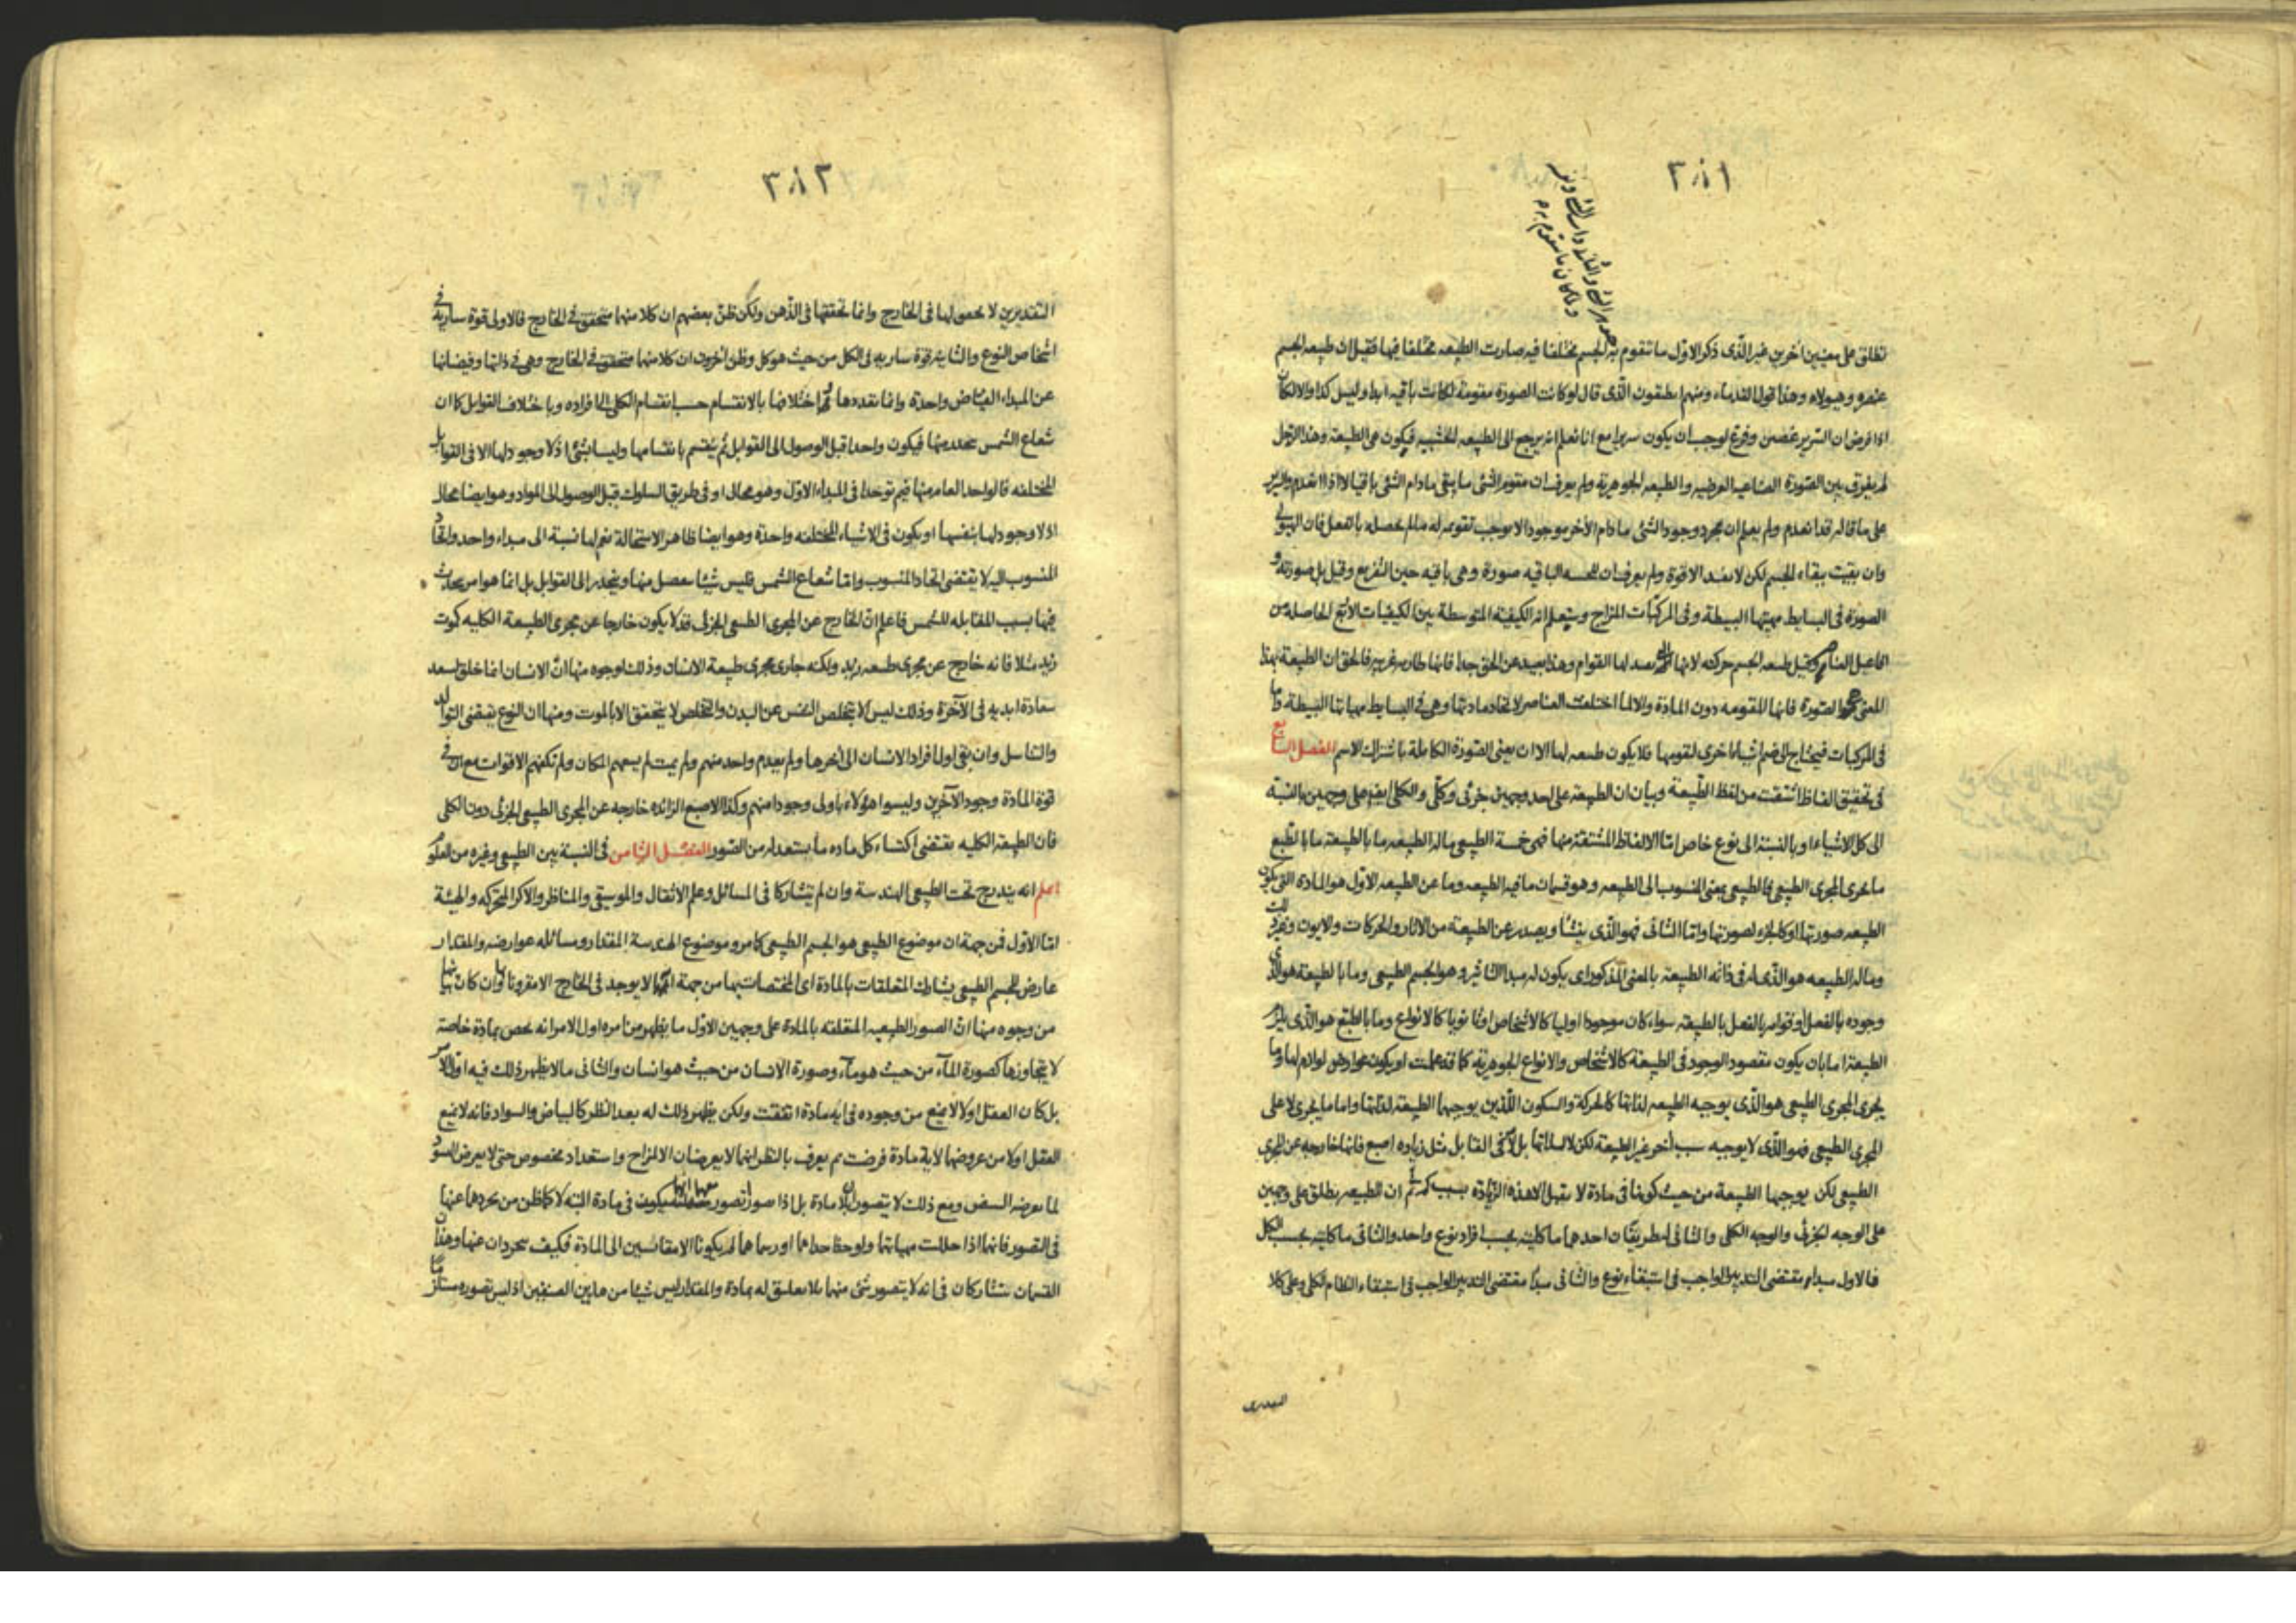 ٢٨١
تطلق على معنيين آخرين غير الذى ذكر الاول ما تتقوم به الجسم مختلفا فيه صارت الطبيعه مختلفا فيها فقيل ان طبيعه الجسم
عنصره وهيولاه وهذا قول القدماء ومنهم انطيقون الذى قال لو كانت الصورة مقومة لكانت باقيه ابدا وليس كذا والا لكان
اذا فرض ان السرير غصن وفرع لوجب ان يكون سريرا مع انا نعلم انه يرجع الى الطبيعه الخشبيه فيكون هى الطبيعة وهذا الرجل
لم يفرق بين الصورة الصناعيه العرضيه والطبيعه الجوهرية ولم يعرف ان مقوم الشئ ما يبقى مادام الشئ باقيا لا اذا انعدم والسرير
على ما قاله قد انعدم ولم يعلم ان مجرد وجود الشئ مادام الآخر موجودا لا يوجب تقويمه له مالم يحصله بالفعل فان الهيولى
وان بقيت ببقاء الجسم لكن لا تفيد الا قوة ولم يعرف ان للخشبه الباقيه صورة وهى باقيه حين التفريع وقيل بل صورته و
الصورة فى البسايط مهيتها البسيطة وفى المركبات المزاج وستعلم انه الكيفية المتوسطة بين الكيفيات الاربع الحاصلة من
تفاعيل العناصر وقيل طبيعه الجسم حركته لانها تفيد لها القوام وهذا بعيد عن الحق جدا فانها طاريه غريبه فالحق ان الطبيعة بهذا
المعنى هو الصورة فانها المقومه دون المادة والا لما اختلفت العناصر لاتحاد مادتها وهى فى البسايط مهياتها البسيطة واما
فى المركبات فيحتاج الى ضم اشياء اخرى لتقومها فلا يكون طبيعه لها الا ان يعنى الصورة الكاملة باشتراك الاسم الفصل السابع
فى تحقيق الفاظ اشتقت من لفظ الطبيعة وبيان ان الطبيعه على احد وجهين جزئى وكلى والكلى ايضا على وجهين بالنسبة
الى كل الاشياء او بالنسبة الى نوع خاص اما الالفاظ المشتقة منها فهى خمسة الطبيعى ماله الطبيعه ما بالطبيعة ما بالطبع
ما يجرى المجرى الطبيعى فالطبيعى يعنى المنسوب الى الطبيعه وهو قسمان ما فيه الطبيعه وما عن الطبيعه الاول هو المادة التى يكون
الطبيعه صورتها او كالجزء لصورتها واما الثانى فهو الذى ينشأ ويصدر عن الطبيعة من الاثار والحركات والايون
وماله الطبيعه هو الذى له فى ذاته الطبيعة بالمعنى المذكور اى يكون له مبدأ التأثير وهو الجسم الطبيعى وما بالطبيعة هو الذى
وجوده بالفعل او قوامه بالفعل بالطبيعه سواء كان موجودا اوليا كالاشخاص او ثانويا كالانواع وما بالطبع هو الذى يلزم
الطبيعة اما بان يكون مقصود الوجود فى الطبيعة كالاشخاص والانواع الجوهرية كما قد علمت او يكون عوارض لوازم لها وما
يجرى المجرى الطبيعى هو الذى يوجبه الطبيعه لذاتها كالحركة والسكون اللذين يوجبها الطبيعة لذاتها واما ما يجرى لا على
المجرى الطبيعى فهو الذى لا يوجبه سبب آخر غير الطبيعة لكن لا لذاتها بل لامر فى القابل مثل زياده اصبع فانها خارجه عن المجرى
الطبيعى لكن يوجبها الطبيعة من حيث كونها فى مادة لا تقبل الا هذه الزيادة بسبب ثم ان الطبيعه يطلق على وجهين
على الوجه الجزئى والوجه الكلى والثانى له طريقان احدهما ما كليته بحسب افراد نوع واحد والثانى ما كليته بحسب الكل
فالاول مبداء مقتضى التدبير الواجب فى استبقاء نوع والثانى مبدأ مقتضى التدبير الواجب فى استبقاء النظام الكلى وعلى كلا
التقديرين
٣٨٢
التقديرين لا تحقق لها فى الخارج وانما تحققها فى الذهن ولكن ظن بعضهم ان كلا منها متحقق فى الخارج فالاولى قوة سارية فى
اشخاص النوع والثانية قوة ساريه فى الكل من حيث هو كل وظن آخرون ان كلا منها متحقق فى الخارج وهى فى ذاتها وفيضانها
عن المبداء الفياض واحدة وانما تعددها واختلافها بالانقسام حسب انقسام الكلى الى افراده وباختلاف القوابل كما ان
شعاع الشمس فيكون واحدا قبل الوصول الى القوابل ثم ينقسم بانقسامها وليسا بشئ اذ لا وجود لها الا فى القوابل
المختلفه فالواحد العام منها توحدا فى المبداء الاول وهو محال او فى طريق السلوك قبل الوصول الى المواد وهو ايضا محال
اذ لا وجود لها بنفسها او يكون فى الاشياء المختلفه واحدة وهو ايضا ظاهر الاستحالة نعم لها نسبة الى مبداء واحد واتحاد
المنسوب اليه لا يقتضى اتحاد المنسوب واما شعاع الشمس فليس شيئا ينفصل منها وينحدر الى القوابل بل انما هو امر يحدث
فيها بسبب المقابله للشمس فاعلم ان الخارج عن المجرى الطبيعى الجزئى قد لا يكون خارجا عن مجرى الطبيعة الكليه كموت
زيد مثلا فانه خارج عن مجرى طبيعه زيد ولكنه جار مجرى طبيعة الانسان وذلك لوجوه منها ان الانسان انما خلق ليسعد
سعادة ابديه فى الآخرة وذلك ليس الا بتخلص النفس عن البدن والتخلص لا يتحقق الا بالموت ومنها ان النوع يقتضى التوالد
والتناسل وان بقى اولها افراد الانسان الى آخرها ولم يعدم واحد منهم ولم يمت لم يسعهم المكان ولم تكفهم الاقوات مع ان فى
قوة المادة وجود الآخرين وليسوا هؤلاء باولى وجودا منهم وكذا الاصبع الزائده خارجه عن المجرى الطبيعى الجزئى دون الكلى
فان الطبيعة الكليه يقتضى اكتساء كل ماده ما يستعد له من الصور الفصل الثامن فى النسبة بين الطبيعى وغيره من العلوم
اعلم انه يندرج تحت الطبيعى الهندسة وان لم يتشاركا فى المسائل وعلم الاثقال والموسيقى والمناظر والاكر المتحركه والهيئة
اما الاول فمن جهة ان موضوع الطبيعى هو الجسم الطبيعى كما مر وموضوع الهندسة المقدار ومسائله عوارضه والمقدار
عارض للجسم الطبيعى يشارك المتعلقات بالمادة اى المختصات بها من جهة انه لا يوجد فى الخارج الا مقرونا بها وان كان
من وجوه منها ان الصور الطبيعيه المتعلقه بالمادة على وجهين الاول ما يظهر من امره اول الامر انه يخص بمادة خاصة
لا يتجاوزها كصورة الماء من حيث هو ماء وصورة الانسان من حيث هو انسان والثانى ما لا يظهر ذلك فيه اول الامر
بل كان العقل اولا لا يمنع من وجوده فى ايه مادة اتفقت ولكن يظهر ذلك له بعد النظر كالبياض والسواد فانه لا يمنع
العقل اولا من عروضها لاية مادة فرضت ثم يعرف بالنظر انها لا يعرضان الا لمزاج واستعداد مخصوص حتى لا يعرض السواد
لما يعرضه البياض ومع ذلك لا يتصوران بلا مادة بل اذا تصورا تصور معهما انهما يكون فى مادة البته لا كما ظن من تجردها عنها
فى التصور فانها اذا حللت مهياتها ولوحظ حداهما او رسماهما لم يكونا الا مقائسين الى المادة فكيف يتجردان عنها وهذان
القسمان يتشاركان فى انه لا يتصور شئ منها بلا تعليق له بمادة والمقدار ليس شيئا من هاتين الصنفين اذ ليس تصوره مستلزما